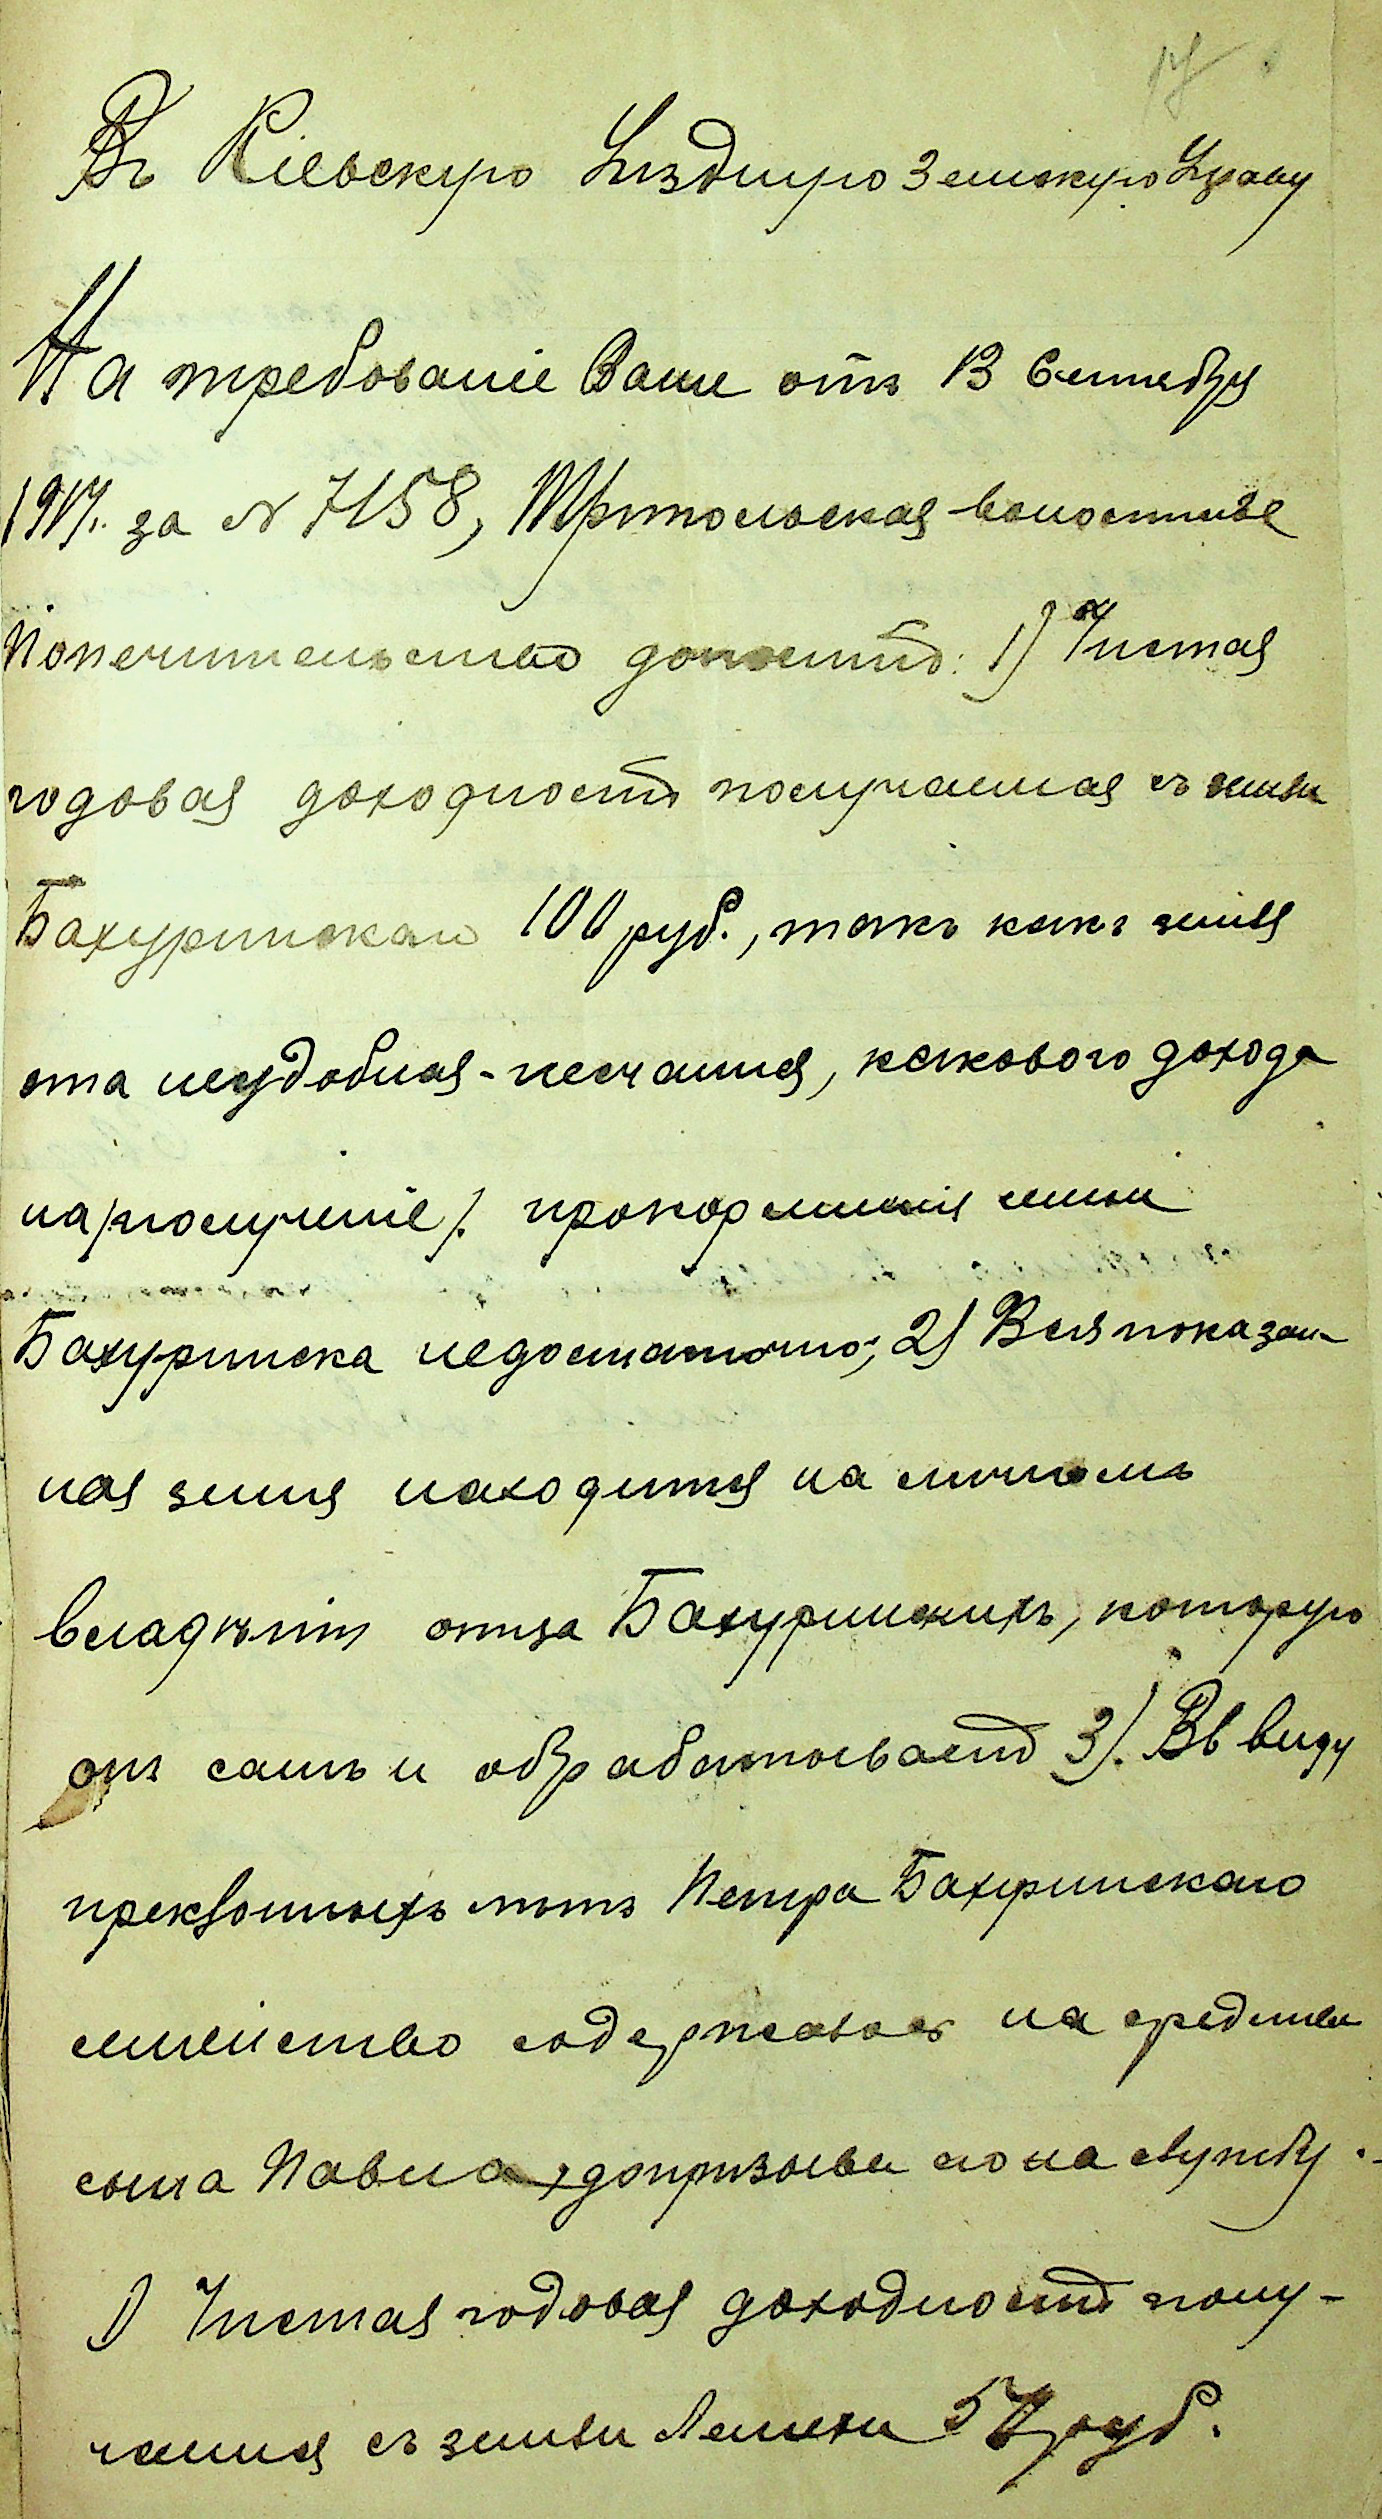 Въ Кіевскую Уѣздную Земскую Управу
На требованіе Ваше отъ 13 Сентября
1917г. за N 7158, Трипольская волостное
Попечительство доноситъ: 1) Чистая
годовая доходность получаемая съ земли
Бахуринскаго 100 руб., такъ какъ земля
эта неудобная - песчаная, каковаго дохода
на /получение/. прокормленія семьи
Бахуринска недостаточно; 2) Вся показан-
ная земля находится на личномъ
владѣніи отца Бахуринскихъ, которую
онъ самъ и обрабатываетъ 3). Въ виду
преклонныхъ лѣтъ Петра Бахуринскаго
семейство содержалось на средства
сына Павла, до призыва его на службу.
1) Чистая годовая доходность полу-
чаемая съ земли Лемехи 57 руб.